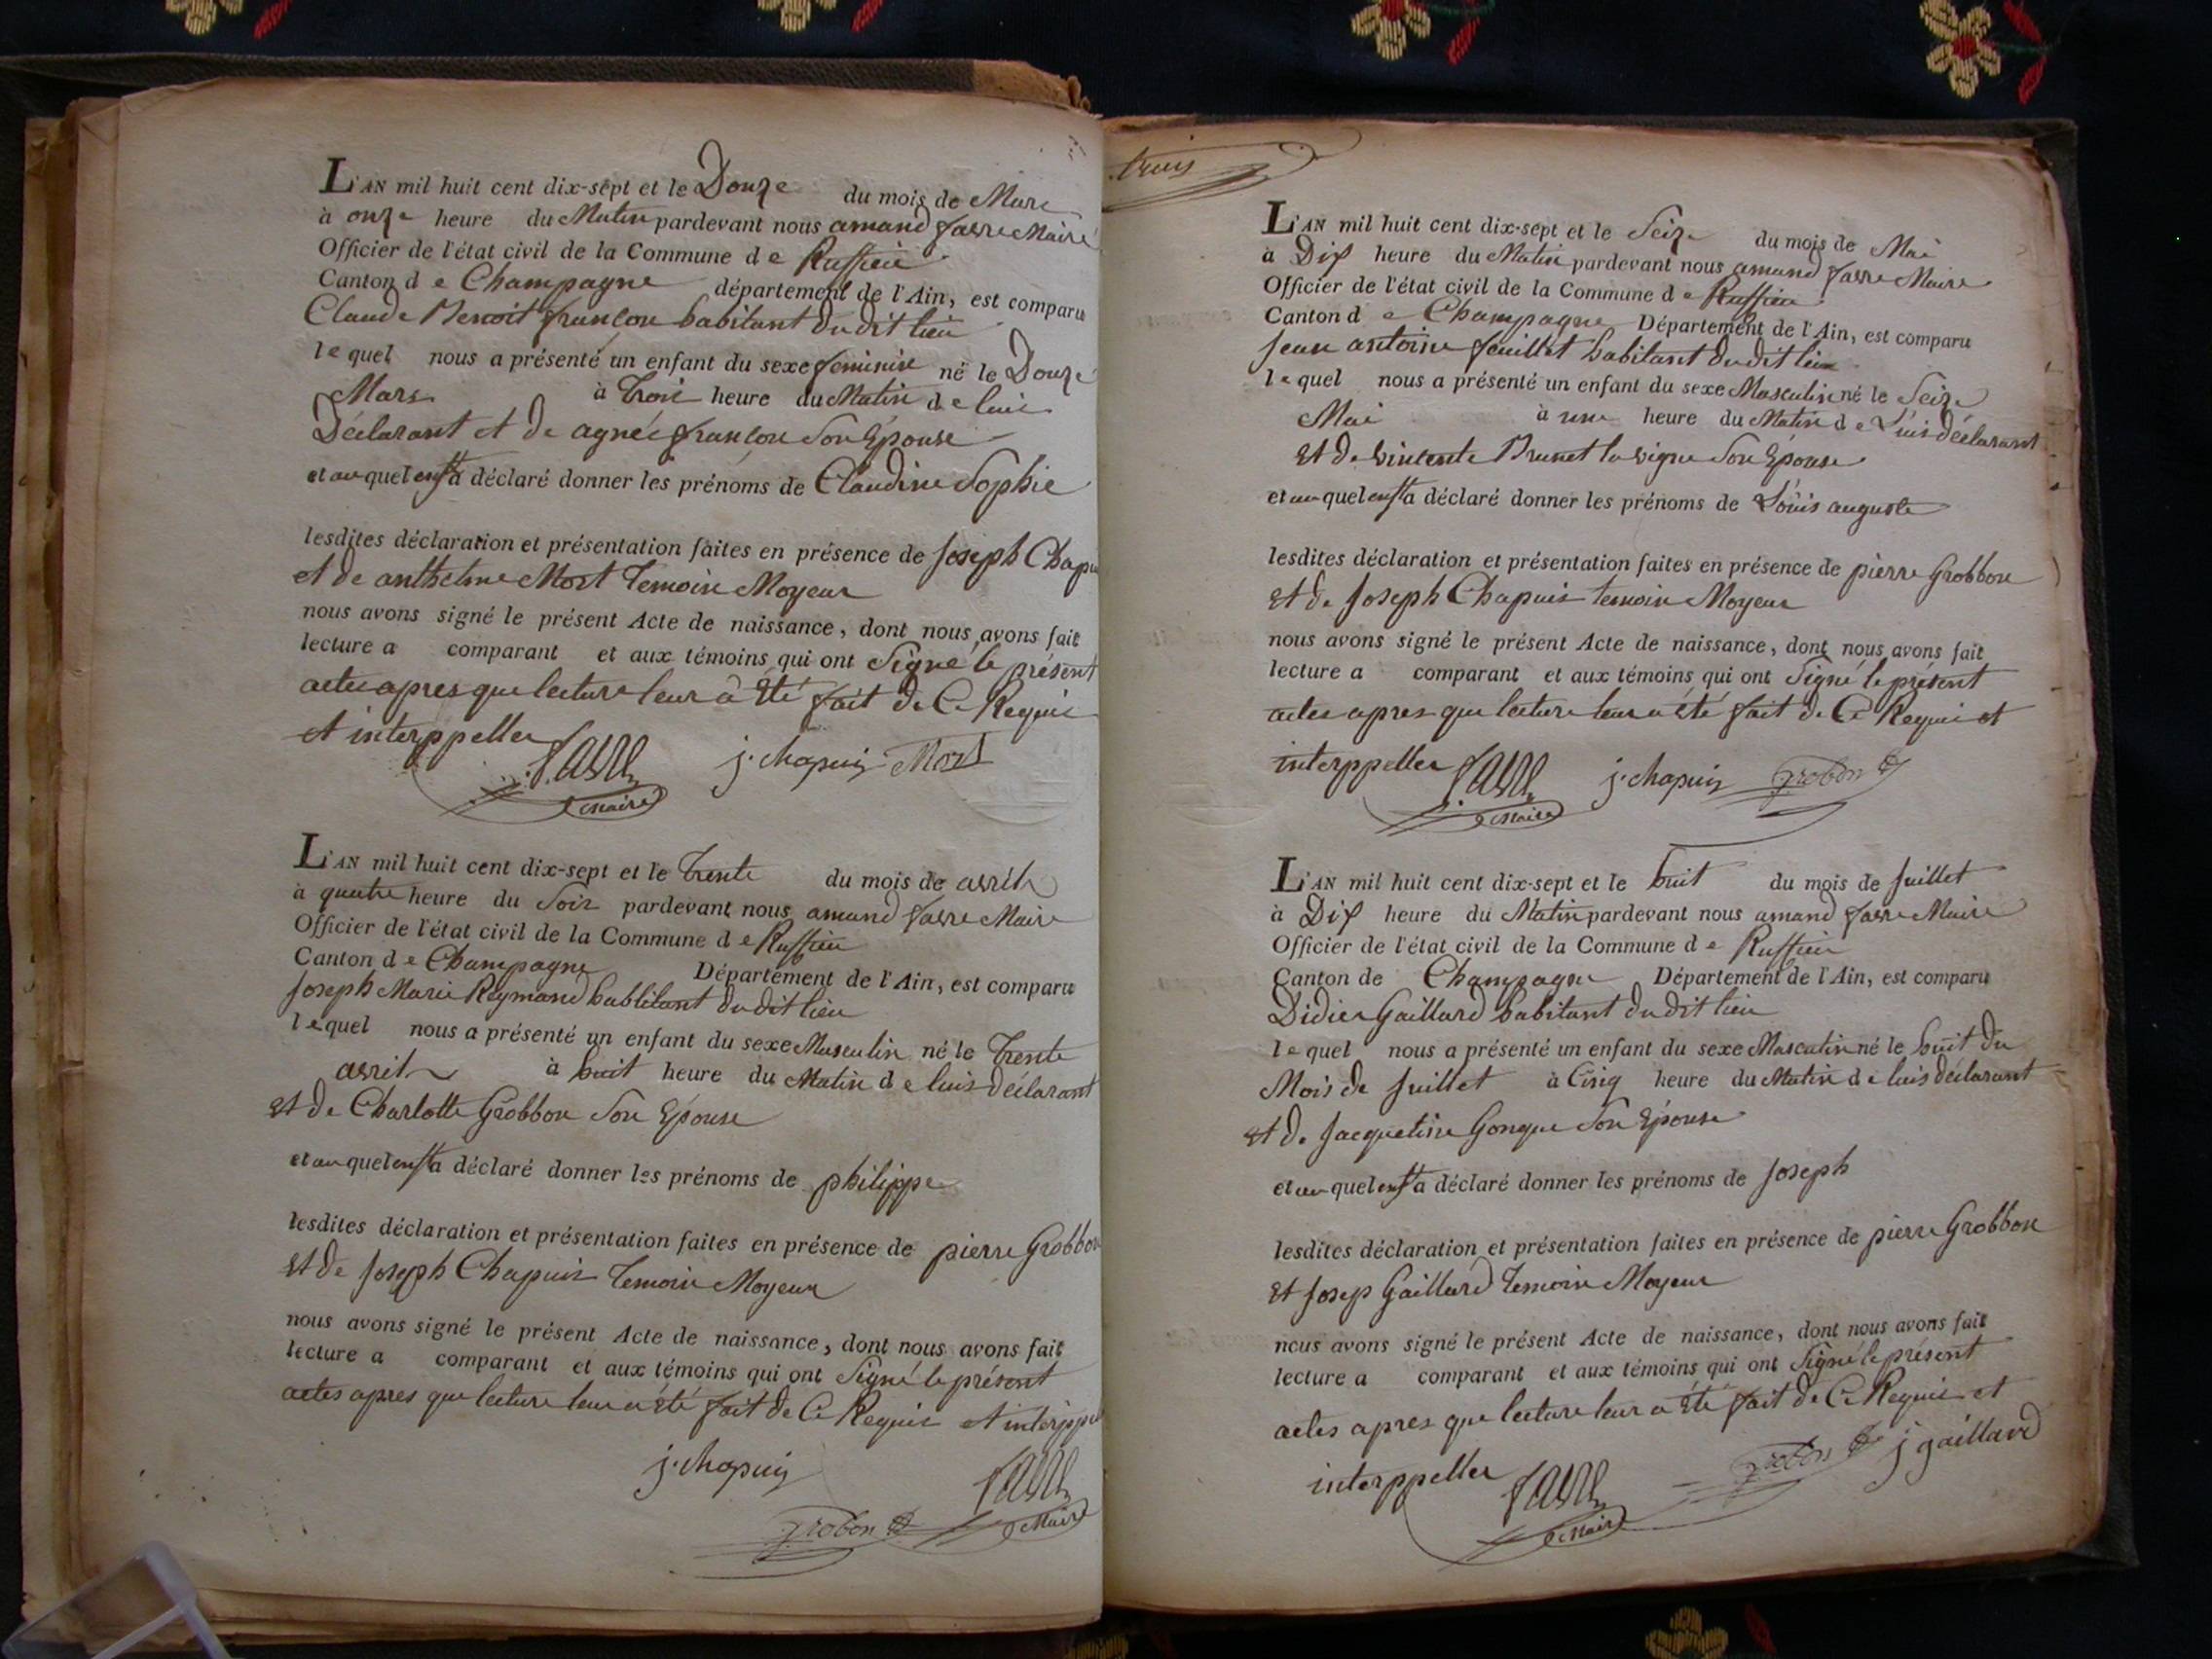 L'AN mil huit cent dix-sept et le Douze du mois de Mars
à onze heure du Matin pardevant nous amand favre Maire
Officier de l'état civil de la Commune de Ruffieu
Canton de Champagne département de l'Ain, est comparu
Claude Benoit françon habitant du dit lieu
lequel nous a présenté un enfant du sexe feminin né le Douze
Mars à Troi heure du Matin de lui
Déclarant et de agnée françon Son Epouse
et auquel enft a déclaré donner les prénoms de Claudine Sophie
lesdites déclaration et présentation faites en présence de Joseph Chapui
et de anthelme Mort Temoin Moyeur
nous avons signé le présent Acte de naissance, dont nous avons fait
lecture a comparant et aux témoins qui ont Signé le présent
actes apres que lecture leur à Eté fait de Ce Requis
et interppeller
favre maire j. chapuis Mort
L'AN mil huit cent dix-sept et le Trente du mois de avril
à quatre heure du Soir pardevant nous amand favre Maire
Officier de l'état civil de la Commune de Ruffieu
Canton de Champagne Département de l'Ain, est comparu
Joseph Marie Reymand habbitant du dit lieu
lequel nous a présenté un enfant du sexe Masculin né le Trente
avril à huit heure du Matin de luis déclarant
Et de Charlotte Grobbon Son Epouse
et auquel enft a déclaré donner les prénoms de philippe
lesdites déclaration et présentation faites en présence de pierre Grobbon
Et de Joseph Chapuis Temoin Moyeur
nous avons signé le présent Acte de naissance, dont nous avons fait
lecture a comparant et aux témoins qui ont Signé le présent
actes apres que lecture leur a Eté fait de Ce Requis et interppel
j. chapuis favre
grobon maire
trois
L'AN mil huit cent dix-sept et le Seize du mois de Mai
à Dix heure du Matin pardevant nous amand favre Maire
Officier de l'état civil de la Commune de Ruffieu
Canton de Champagne Département de l'Ain, est comparu
Jean antoine feuillet habitant du dit lieu
lequel nous a présenté un enfant du sexe Masculin né le Seize
Mai à une heure du Matin de Luis déclarant
Et de vincente Brunet la vigne Son Epouse
et auquel enft a déclaré donner les prénoms de Louis auguste
lesdites déclaration et présentation faites en présence de pierre Grobbon
Et de Joseph Chapuis temoin Moyeur
nous avons signé le présent Acte de naissance, dont nous avons fait
lecture a comparant et aux témoins qui ont Signé le présent
actes apres que lecture leur a Eté fait de Ce Requi et
interppeller favre maire j. chapuis grobon
L'AN mil huit cent dix-sept et le huit du mois de Juillet
à Dix heure du Matin pardevant nous amand favre Maire
Officier de l'état civil de la Commune de Ruffieu
Canton de Champagne Département de l'Ain, est comparu
Didier Gaillard habitant du dit lieu
lequel nous a présenté un enfant du sexe Masculin né le huit du
Mois de Juillet à Cinq heure du Matin de luis déclarant
et de Jacqueline Gonque Son Epouse
et auquel enft a déclaré donner les prénoms de Joseph
lesdites déclaration et présentation faites en présence de pierre Grobbon
Et Josep Gaillard Temoin Moyeur
nous avons signé le présent Acte de naissance, dont nous avons fait
lecture a comparant et aux témoins qui ont Signé le présent
actes apres que lecture leur a Eté fait de Ce Requis et
interppeller favre maire grobon j gaillard